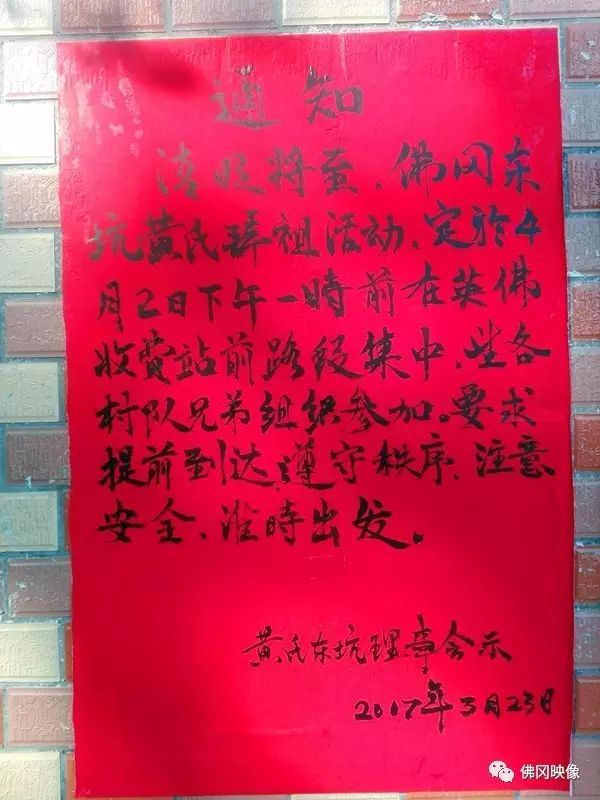 通知
清明将至、佛冈东
坑黄氏拜祖活动、定於4
月2日下午一時前在英佛
收费站前路段集中、望各
村队兄弟组织参加。要求
提前到达遵守秩序、注意
安全、准時出发。
黄氏东坑理事会示
2017年3月23日
佛冈映像